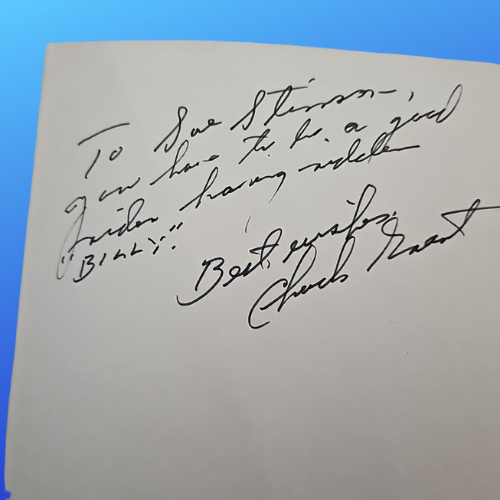 To Sue Stinson,
you have to be a good
rider having ridden
"BILLY."
Best wishes,
Chuck Grant